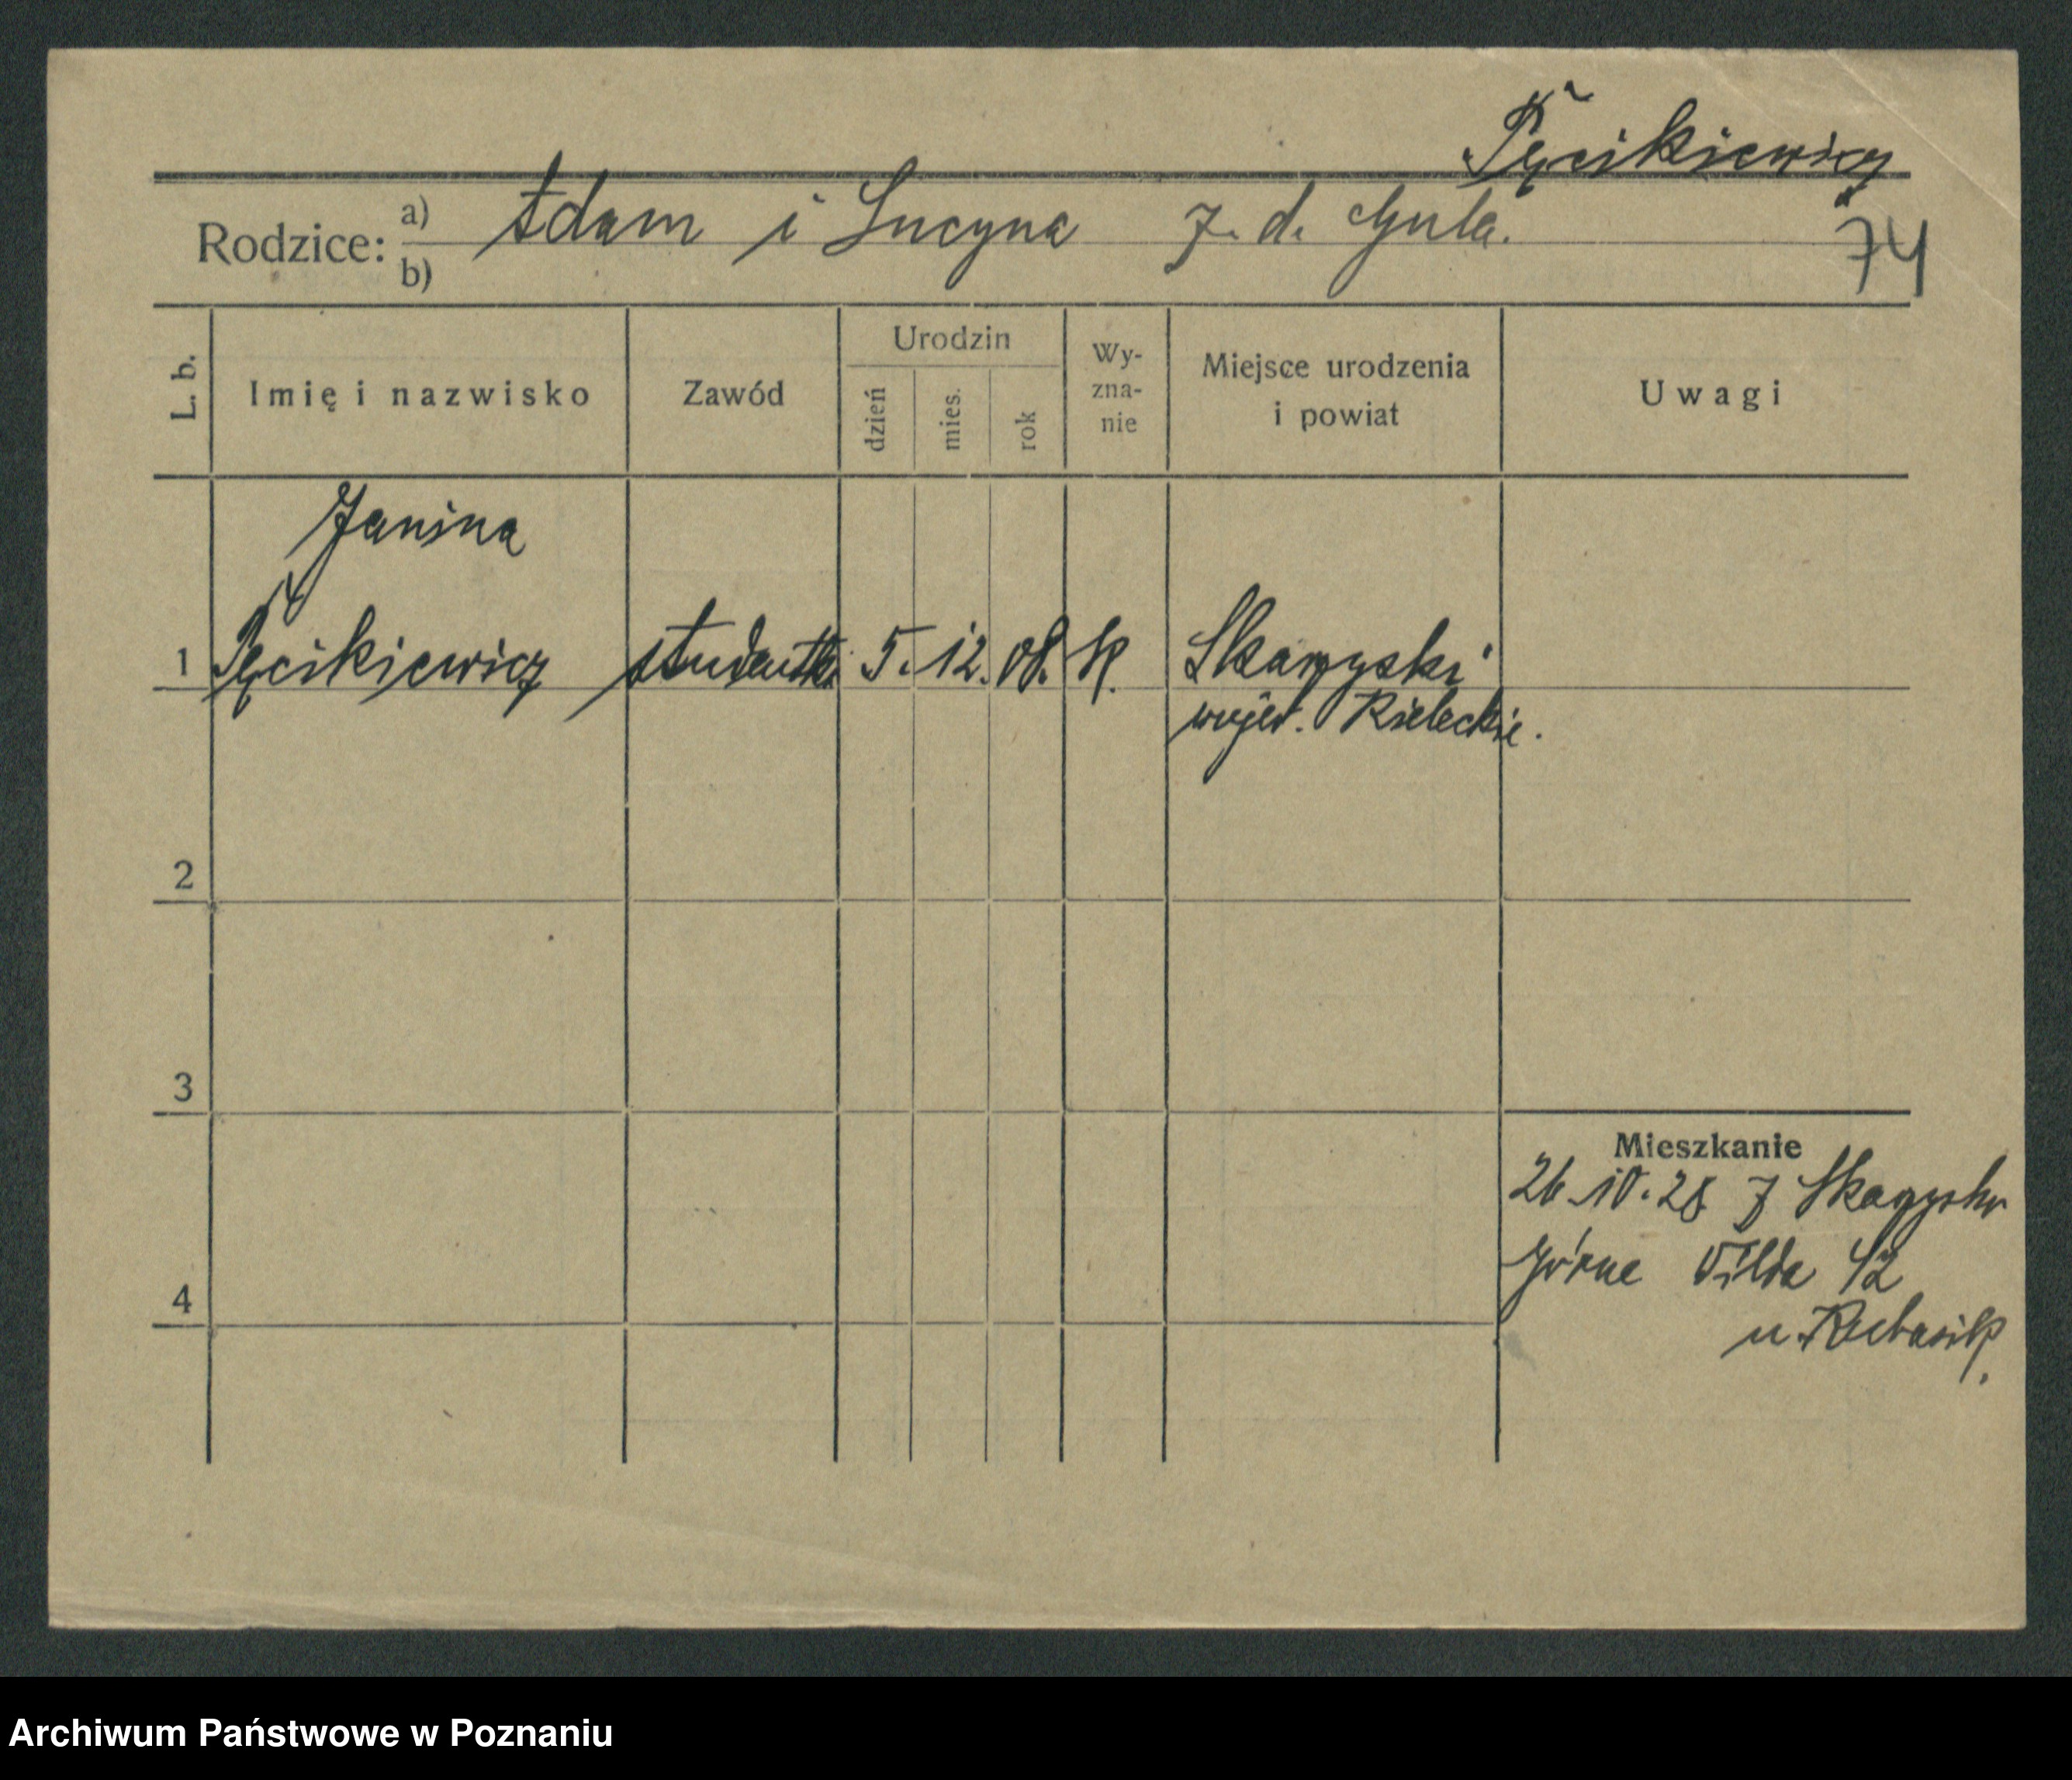 Pęcikiewicz
Rodzice: a) Adam i Lucyna z. d. Gula.
b)
74
L. b.
Imię i nazwisko
Zawód
Urodzin
dzień
mies.
rok
Wy-
zna-
nie
Miejsce urodzenia
i powiat
Uwagi
Janina
1 Pęcikiewicz studentka 5. 12. 08. K. Skarżyski
wojew. Kieleckie.
2
3
4
Mieszkanie
26.10.28 z
Górne Wilda 42
u
Archiwum Państwowe w Poznaniu